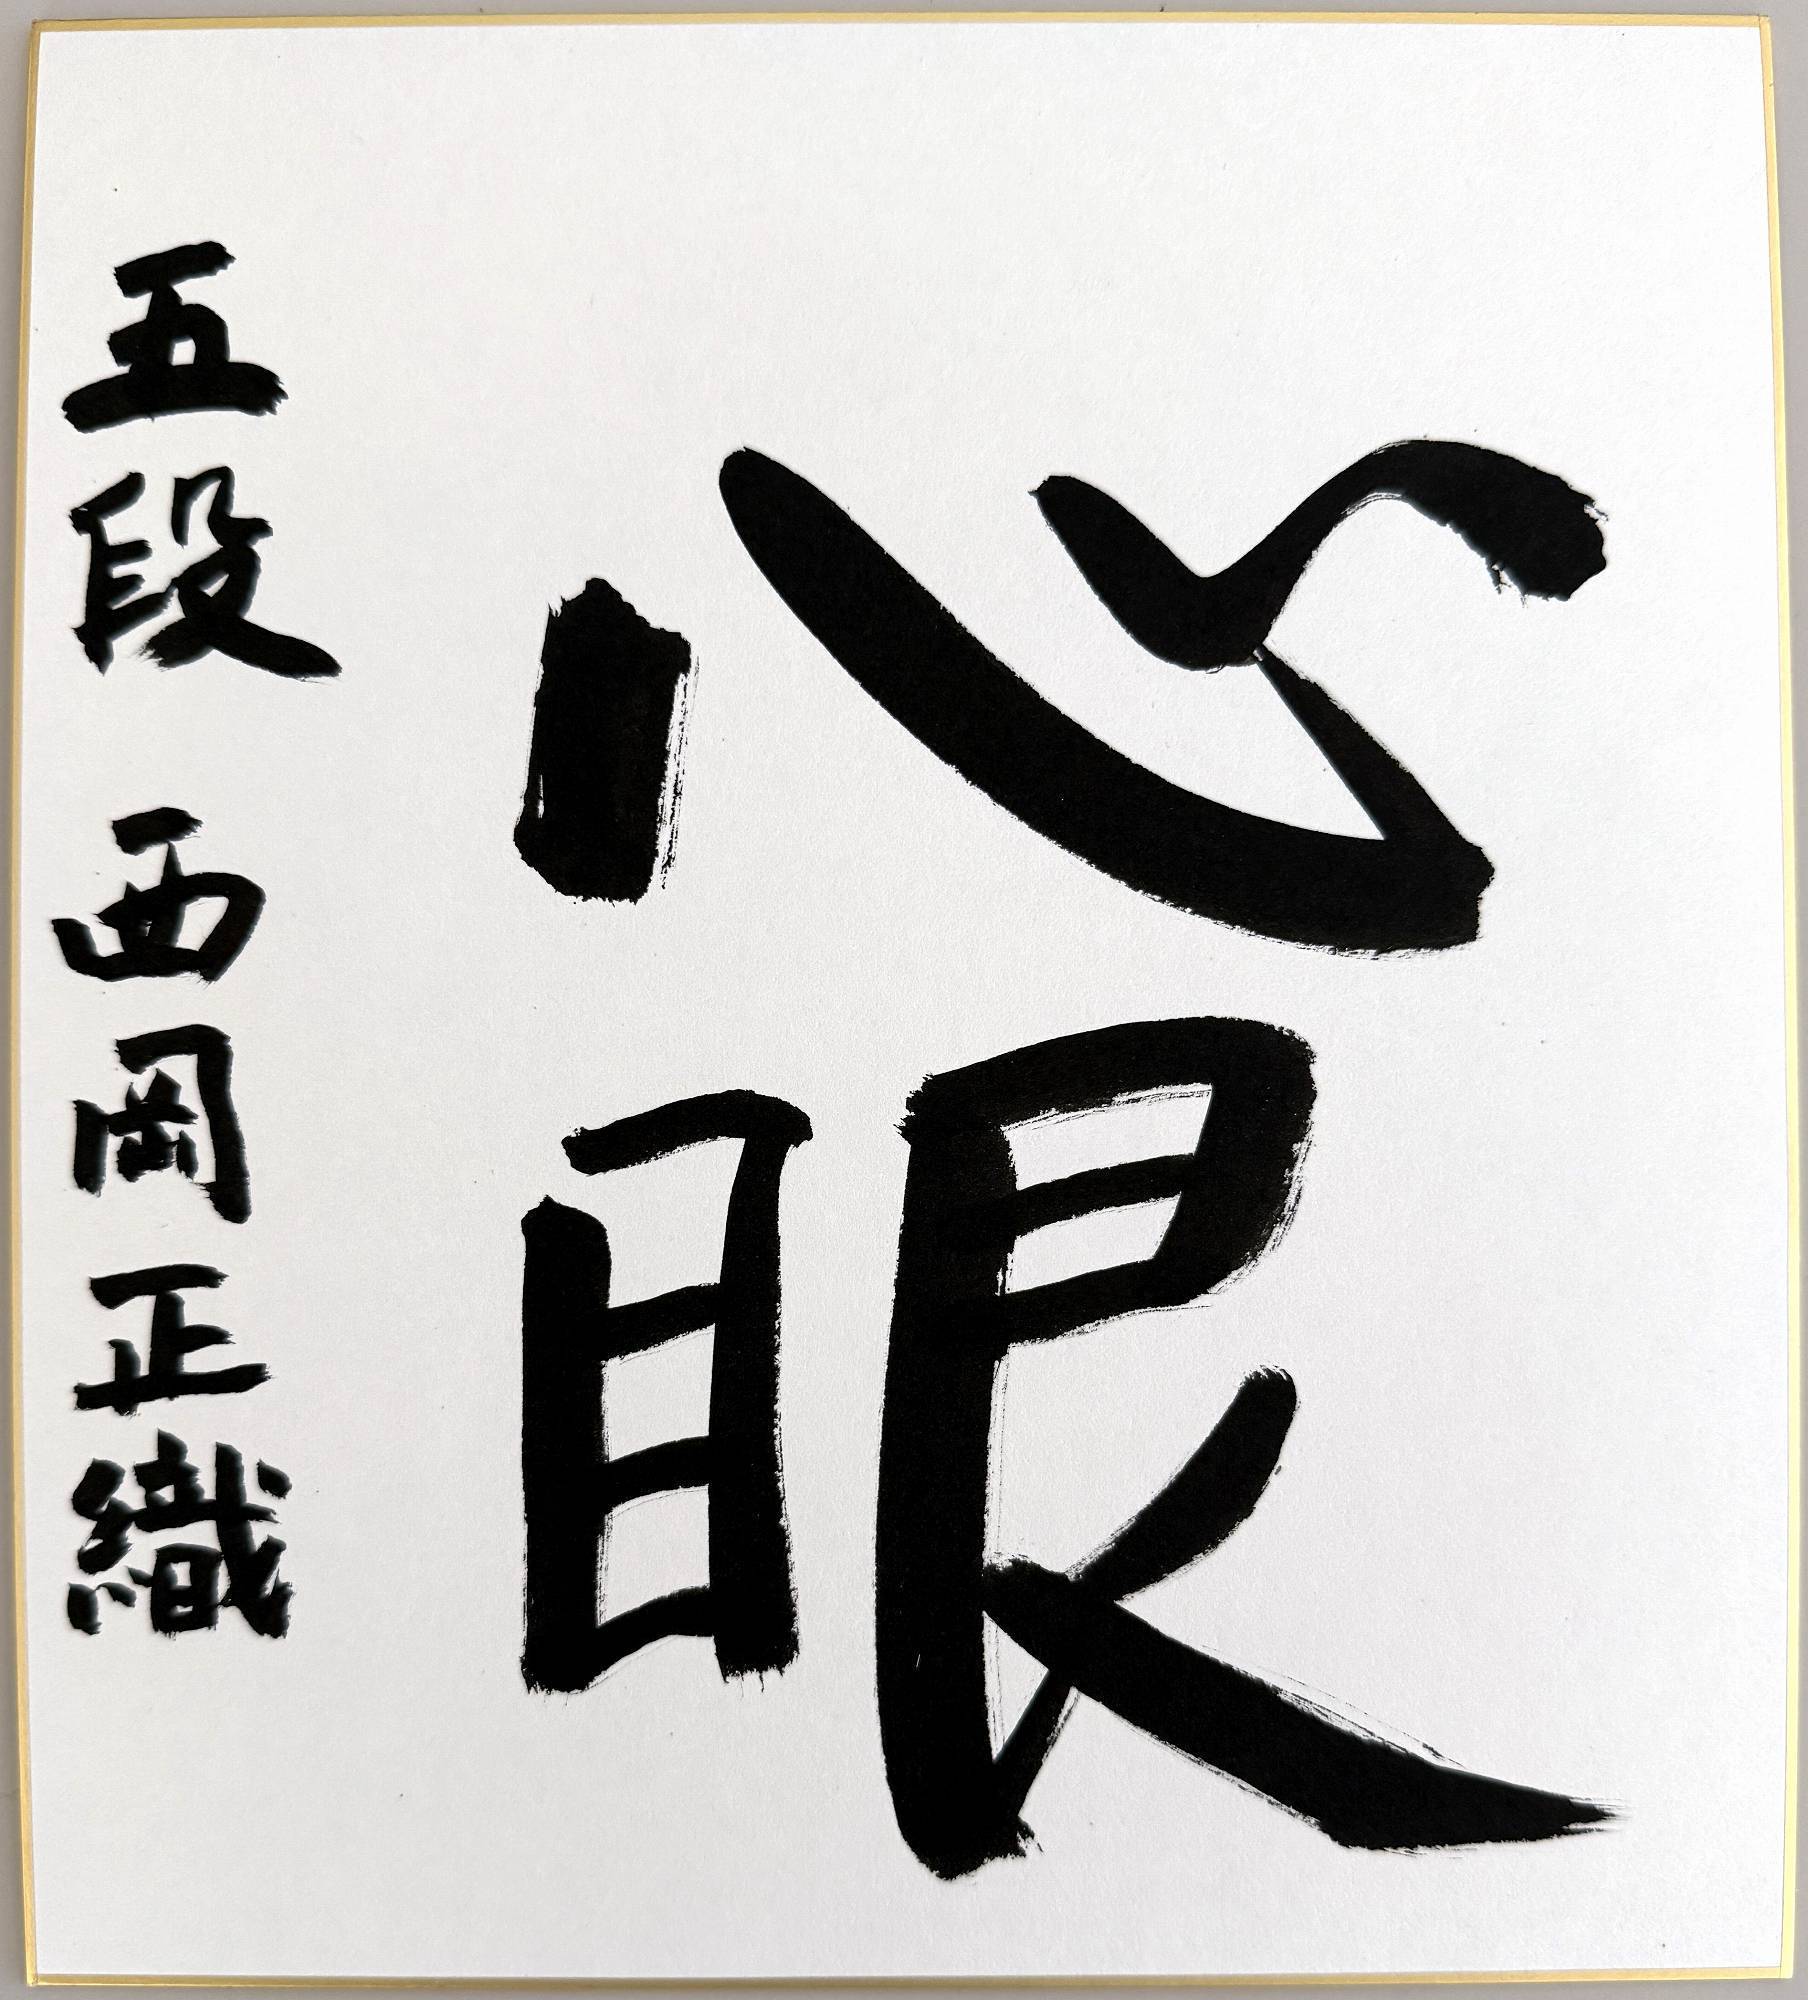 心眼
五段 西岡正織